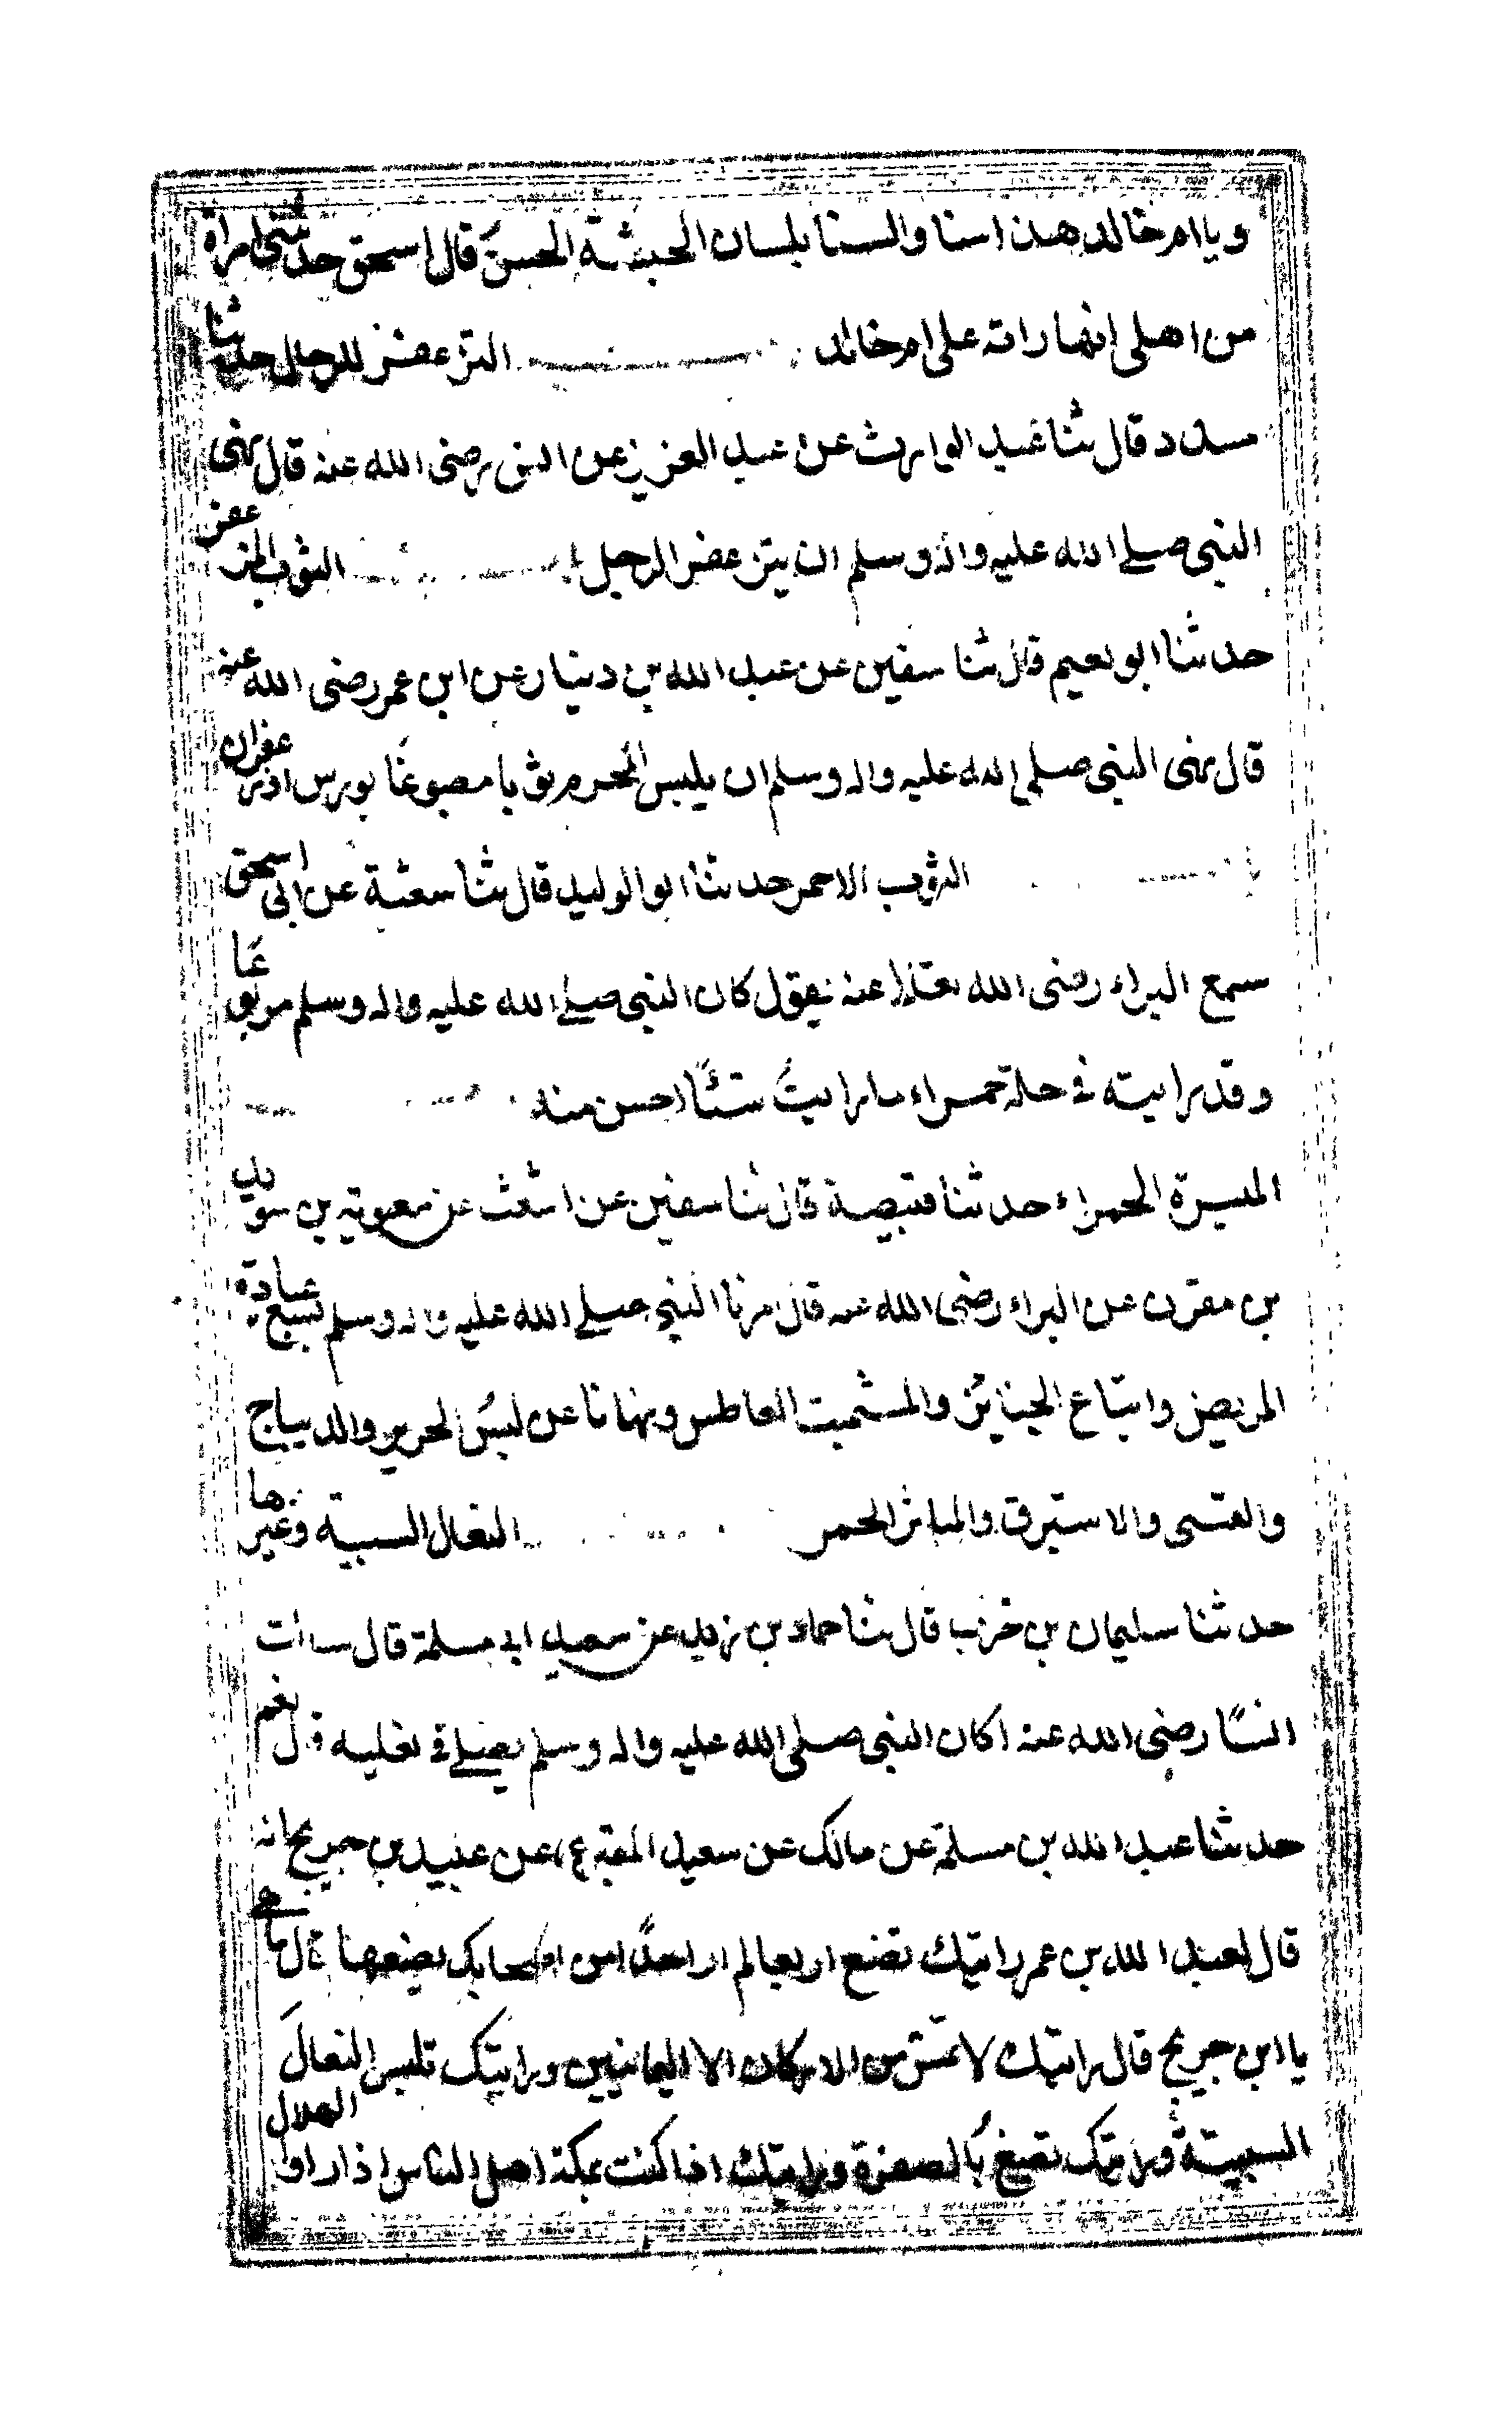 ويا ام خالد هذا سنا والسنا بلسان الحبشة الحسن قال اسحق حدثتني امراة
من اهلي انها راته على ام خالد التزعفر للرجال حدثنا
مسدد قال ثنا عبد الوارث عن عبد العزيز عن انس رضى الله عنه قال نهى
النبي صلى الله عليه واله وسلم ان يتزعفر الرجل الثوب المزعفر
حدثنا ابو نعيم قال ثنا سفين عن عبد الله بن دينار عن ابن عمر رضى الله عنه
قال نهى النبي صلى الله عليه واله وسلم ان يلبس المحرم ثوبا مصبوغا بورس او زعفران
الثوب الاحمر حدثنا ابو الوليد قال ثنا شعبة عن ابى اسحق
سمع البراء رضى الله تعالى عنه يقول كان النبي صلى الله عليه واله وسلم مربوعا
وقد رايته في حلة حمراء ما رايت شيئا احسن منه
الميثرة الحمراء حدثنا قبيصة قال ثنا سفين عن اشعث عن معوية بن سويد
بن مقرن عن البراء رضى الله عنه قال امرنا النبي صلى الله عليه واله وسلم بسبع عيادة
المريض واتباع الجنائز والتشميت العاطس ونهانا عن لبس الحرير والديباج
والقسى والاستبرق والمياثر الحمر النعال السبتية وغيرها
حدثنا سليمان بن حرب قال ثنا حماد بن زيد عن سعيد ابى مسلمة قال سالت
انسا رضى الله عنه اكان النبي صلى الله عليه واله وسلم يصلى في نعليه قال نعم
حدثنا عبد الله بن مسلمة عن مالك عن سعيد المقبري عن عبيد بن جريج انه
قال لعبد الله بن عمر رايتك تصنع اربعا لم ار احدا من اصحابك يصنعها قال ما هي
يا ابن جريج قال رايتك لا تمس من الاركان الا اليمانيين ورايتك تلبس النعال
السبتية ورايتك تصبغ بالصفرة ورايتك اذا كنت بمكة اهل الناس اذا راوا الهلال